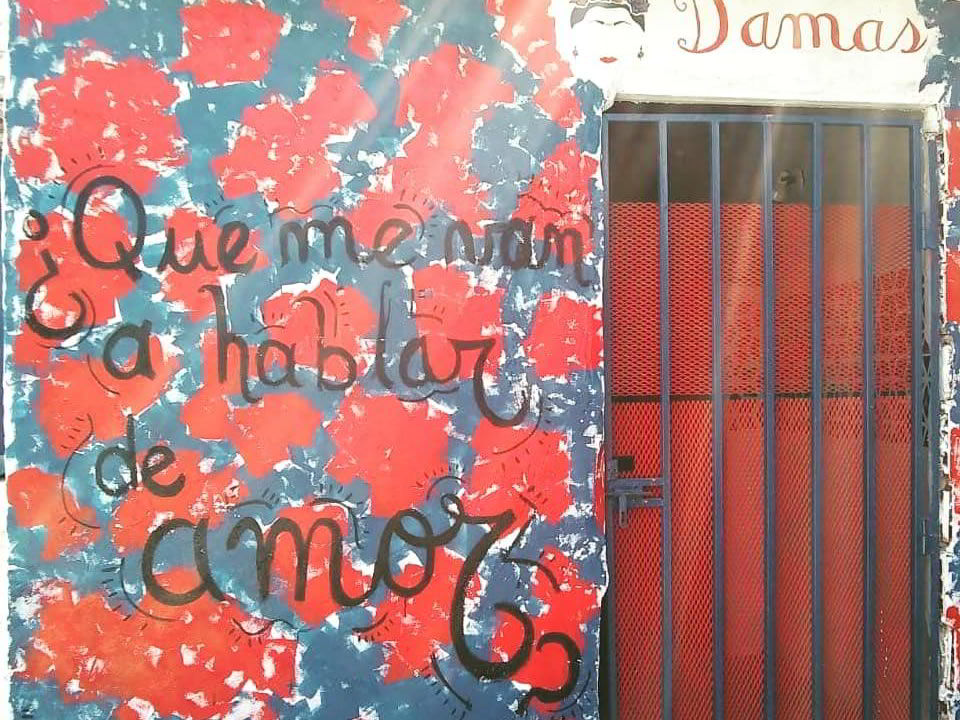 Damas
¿Que me van
a hablar
de
amor?